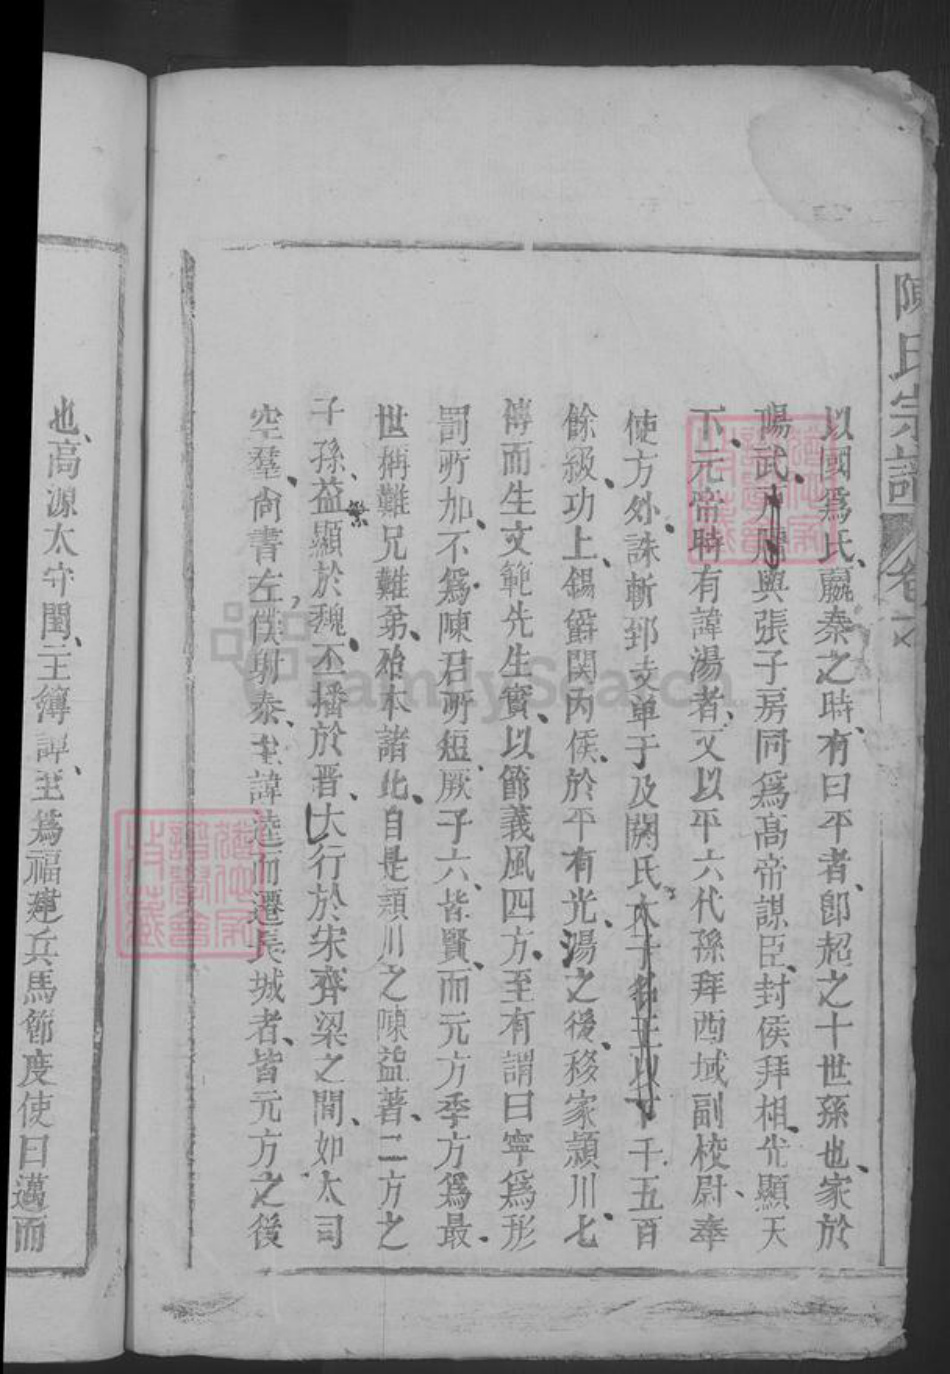 陳氏宗譜
卷之
以國爲氏、嬴秦之時、有曰平者、卽軺之十世孫也、家於
陽武、戶牖與張子房同爲高帝謀臣、封侯拜相、光顯天
下、元帝時有諱湯者、又以平六代孫拜西域副校尉、奉
使方外、誅斬郅支單于及閼氏、太子名王以下千五百
餘級、功上、錫爵關內侯、於平有光、湯之後、移家潁川、七
傳而生文範先生寔、以節義風四方、至有謂曰寧爲形
罰所加、不爲陳君所短、厥子六、皆賢、而元方季方爲最、
世稱難兄難弟、殆本諸此、自是潁川之陳益著、二方之
子孫、益顯於魏、丕播於晋、大行於宋齊梁之間、如太司
繁
空羣、尚書左僕射泰、至諱逵而遷長城者、皆元方之後
也、高源太守閏、主簿諱、至爲福建兵馬節度使曰邁而
FamilySearch